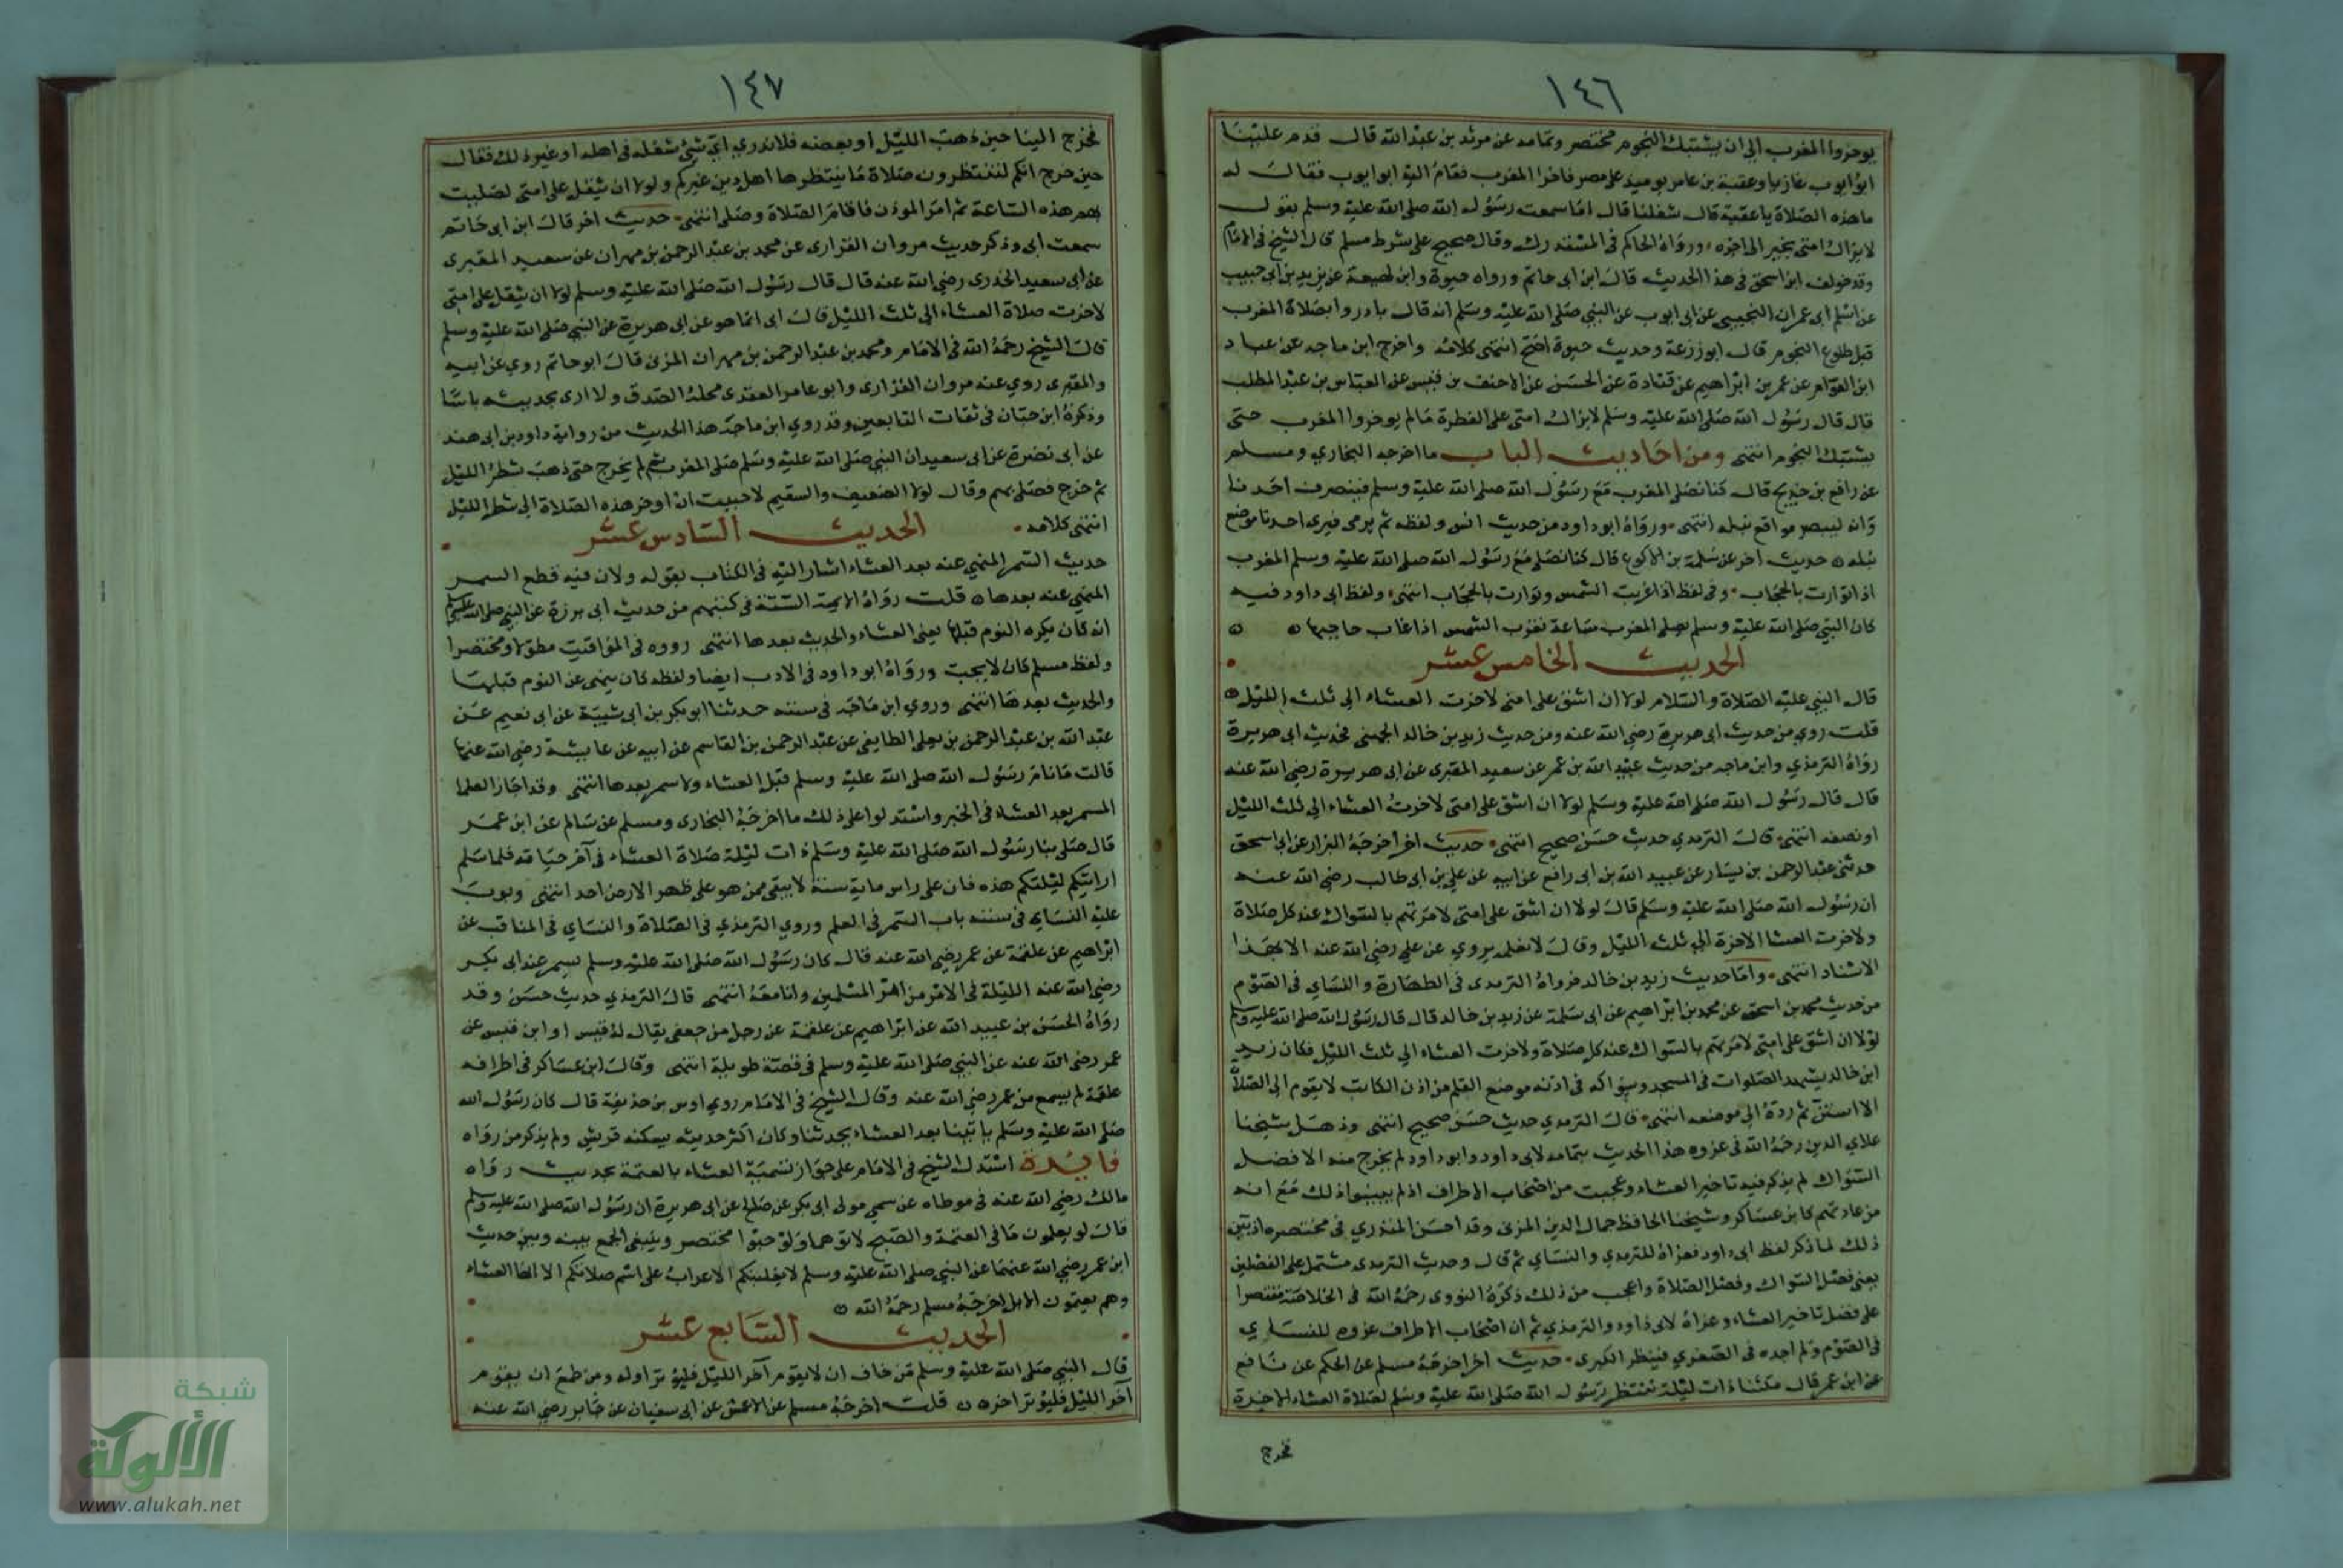 ١٤٦
يوخروا المغرب الى ان يشتبك النجوم مختصر وتمامه عن مرثد بن عبد الله قال قدم علينا
ابو ايوب غازيا وعقبة بن عامر يوميد على مصر فاخر المغرب فقام اليه ابو ايوب فقال له
ما هذه الصلاة يا عقبة قال شغلنا قال اما سمعت رسول الله صلى الله عليه وسلم يقول
لا يزال امتى بخير الى اخره ورواه الحاكم في المستدرك وقال صحيح على شرط مسلم قال الشيخ في الامام
وقد خولف ابن اسحق في هذا الحديث قال ابن ابى حاتم ورواه حيوة وابن لهيعة عن يزيد بن ابى حبيب
عن اسلم ابى عمران التجيبي عن ابى ايوب عن النبي صلى الله عليه وسلم انه قال بادروا بصلاة المغرب
قبل طلوع النجوم قال ابو زرعة وحديث حيوة اصح انتهى كلامه واخرج ابن ماجه عن عباد
ابن العوام عن عمر بن ابراهيم عن قتادة عن الحسن عن الاحنف بن قيس عن العباس بن عبد المطلب
قال قال رسول الله صلى الله عليه وسلم لا يزال امتى على الفطرة ما لم يوخروا المغرب حتى
يشتبك النجوم انتهى ومن احاديث الباب ما اخرجه البخاري ومسلم
عن رافع بن خديج قال كنا نصلى المغرب مع رسول الله صلى الله عليه وسلم فينصرف احدنا
وانه ليبصر مواقع نبله انتهى ورواه ابو داود من حديث انس ولفظه ثم يرمى فيرى احدنا موضع
نبله حديث اخر عن سلمة بن الاكوع قال كنا نصلى مع رسول الله صلى الله عليه وسلم المغرب
اذا توارت بالحجاب وفي لفظ اذا غربت الشمس وتوارت بالحجاب انتهى ولفظ ابى داود فيه
كان النبي صلى الله عليه وسلم يصلى المغرب ساعة تغرب الشمس اذا غاب حاجبها
الحديث الخامس عشر
قال النبي عليه الصلاة والسلام لولا ان اشق على امتى لاخرت العشاء الى ثلث الليل
قلت روى من حديث ابى هريرة رضي الله عنه ومن حديث زيد بن خالد الجهنى فحديث ابى هريرة
رواه الترمذي وابن ماجه من حديث عبيد الله بن عمر عن سعيد المقبرى عن ابى هريرة رضي الله عنه
قال قال رسول الله صلى الله عليه وسلم لولا ان اشق على امتى لاخرت العشاء الى ثلث الليل
او نصفه انتهى قال الترمدي حديث حسن صحيح انتهى حديث اخر اخرجه البزار عن ابن اسحق
حدثنى عبد الرحمن بن يسار عن عبيد الله بن ابى رافع عن ابيه عن علي بن ابى طالب رضي الله عنه
ان رسول الله صلى الله عليه وسلم قال لولا ان اشق على امتى لامرتهم بالسواك عند كل صلاة
ولاخرت العشا الاخرة الى ثلث الليل وقال لا نعلمه يروي عن علي رضي الله عنه الا بهذا
الاسناد انتهى واما حديث زيد بن خالد فرواه الترمدى في الطهارة والنساي في الصوم
من حديث محمد بن اسحق عن محمد بن ابراهيم عن ابى سلمة عن زيد بن خالد قال قال رسول الله صلى الله عليه وسلم
لولا ان اشق على امتى لامرتهم بالسواك عند كل صلاة ولاخرت العشاء الى ثلث الليل فكان زيد
ابن خالد يشهد الصلوات في المسجد وسواكه في اذنه موضع القلم من اذن الكاتب لا يقوم الى الصلاة
الا استن ثم رده الى موضعه انتهى قال الترمدي حديث حسن صحيح انتهى وذهل شيخنا
علاي الدين رحمه الله في عزوه هذا الحديث بتمامه لابى داود وابو داود لم يخرج منه الا فضل
السواك لم يذكر فيه تاخير العشاء وعجبت من اصحاب الاطراف اذ لم يبينوا ذلك مع انه
من عادتهم كابن عساكر وشيخنا الحافظ جمال الدين المزى وقد احسن المنذري في مختصره اذ بين
ذلك لما ذكر لفظ ابى داود فعزاه للترمدي والنساي ثم قال وحديث الترمدى مشتمل على الفضلين
يعنى فضل السواك وفضل الصلاة واعجب من ذلك ذكره النووى رحمه الله في الخلاصة مقتصرا
على فضل تاخير العشاء وعزاه لابى داود والترمذي ثم ان اصحاب الاطراف عزوه للنساي
في الصوم ولم اجده في الصغرى فينظر الكبرى حديث اخر اخرجه مسلم عن الحكم عن نافع
عن ابن عمر قال مكثنا ذات ليلة ننتظر رسول الله صلى الله عليه وسلم لصلاة العشاء الاخيرة
فخرج
١٤٧
فخرج الينا حين ذهب الليل او بعضه فلا ندري اى شئ شغله في اهله او غير ذلك فقال
حين خرج انكم لتنتظرون صلاة ما ينتظرها اهل دين غيركم ولولا ان يثقل على امتى لصليت
بهم هذه الساعة ثم امر الموذن فاقام الصلاة وصلى انتهى حديث اخر قال ابن ابى حاتم
سمعت ابى وذكر حديث مروان الفزارى عن محمد بن عبد الرحمن بن مهران عن سعيد المقبرى
عن ابى سعيد الخدرى رضي الله عنه قال قال رسول الله صلى الله عليه وسلم لولا ان يثقل على امتى
لاخرت صلاة العشاء الى ثلث الليل قال ابى انما هو عن ابى هريرة عن النبي صلى الله عليه وسلم
قال الشيخ رحمه الله في الامام ومحمد بن عبد الرحمن بن مهران المزنى قال ابو حاتم روي عن ابيه
والمقبرى روي عنه مروان الفزارى وابو عامر العقدى محله الصدق ولا ارى بحديثه باسا
وذكره ابن حبان في ثقات التابعين وقد روي ابن ماجة هذا الحديث من رواية داود بن ابى هند
عن ابى نضرة عن ابى سعيد ان النبي صلى الله عليه وسلم صلى المغرب ثم لم يخرج حتى ذهب شطر الليل
ثم خرج فصلى بهم وقال لولا الضعيف والسقيم لاحببت ان اوخر هذه الصلاة الى شطر الليل
انتهى كلامه الحديث السادس عشر
حديث السمر المنهي عنه بعد العشاء اشار اليه في الكتاب بقوله ولان فيه قطع السمر
المنهي عنه بعدها قلت رواه الايمة الستة في كتبهم من حديث ابى برزة عن النبي صلى الله عليه وسلم
انه كان يكره النوم قبلها يعنى العشاء والحديث بعدها انتهى رووه في المواقيت مطولا ومختصرا
ولفظ مسلم كان لا يحب ورواه ابو داود في الادب ايضا ولفظه كان ينهى عن النوم قبلها
والحديث بعدها انتهى وروي ابن ماجه في سننه حدثنا ابو بكر بن ابى شيبة عن ابى نعيم عن
عبد الله بن عبد الرحمن بن يعلى الطايفى عن عبد الرحمن بن القاسم عن ابيه عن عايشة رضي الله عنها
قالت ما نام رسول الله صلى الله عليه وسلم قبل العشاء ولا سمر بعدها انتهى وقد اجاز العلما
السمر بعد العشاء في الخير واستدلوا على ذلك ما اخرجه البخارى ومسلم عن سالم عن ابن عمر
قال صلى بنا رسول الله صلى الله عليه وسلم ذات ليلة صلاة العشاء في آخر حياته فلما سلم
ارايتكم ليلتكم هذه فان على راس ماية سنة لا يبقى ممن هو على ظهر الارض احد انتهى وبوب
عليه النساي في سننه باب السمر في العلم وروي الترمذي في الصلاة والنساي في المناقب عن
ابراهيم عن علقمة عن عمر رضي الله عنه قال كان رسول الله صلى الله عليه وسلم يسمر عند ابى بكر
رضي الله عنه الليلة في الامر من امر المسلمين وانا معه انتهى قال الترمذي حديث حسن وقد
رواه الحسن بن عبيد الله عن ابراهيم عن علقمة عن رجل من جعفي يقال له قيس او ابن قيس عن
عمر رضي الله عنه عن النبي صلى الله عليه وسلم في قصة طويلة انتهى وقال ابن عساكر في اطرافه
علقمة لم يسمع من عمر رضي الله عنه وقال الشيخ في الامام روي اوس بن حذيفة قال كان رسول الله
صلى الله عليه وسلم ياتينا بعد العشاء يحدثنا وكان اكثر حديثه يشكيه قريش ولم يذكر من رواه
فايدة استدل الشيخ في الامام على جواز تسمية العشاء بالعتمة بحديث رواه
مالك رضي الله عنه في موطاه عن سمي مولى ابى بكر عن صالح عن ابى هريرة ان رسول الله صلى الله عليه وسلم
قال لو يعلمون ما في العتمة والصبح لاتوهما ولو حبوا مختصر وينبغى الجمع بينه وبين حديث
ابن عمر رضي الله عنهما عن النبي صلى الله عليه وسلم لا يغلبنكم الاعراب على اسم صلاتكم الا انها العشاء
وهم يعتمون الابل اخرجه مسلم رحمه الله
الحديث السابع عشر
قال النبي صلى الله عليه وسلم من خاف ان لا يقوم آخر الليل فليوتر اوله ومن طمع ان يقوم
آخر الليل فليوتر اخره قلت اخرجه مسلم عن الاعمش عن ابى سفيان عن جابر رضي الله عنه
شبكة
الألوكة
www.alukah.net